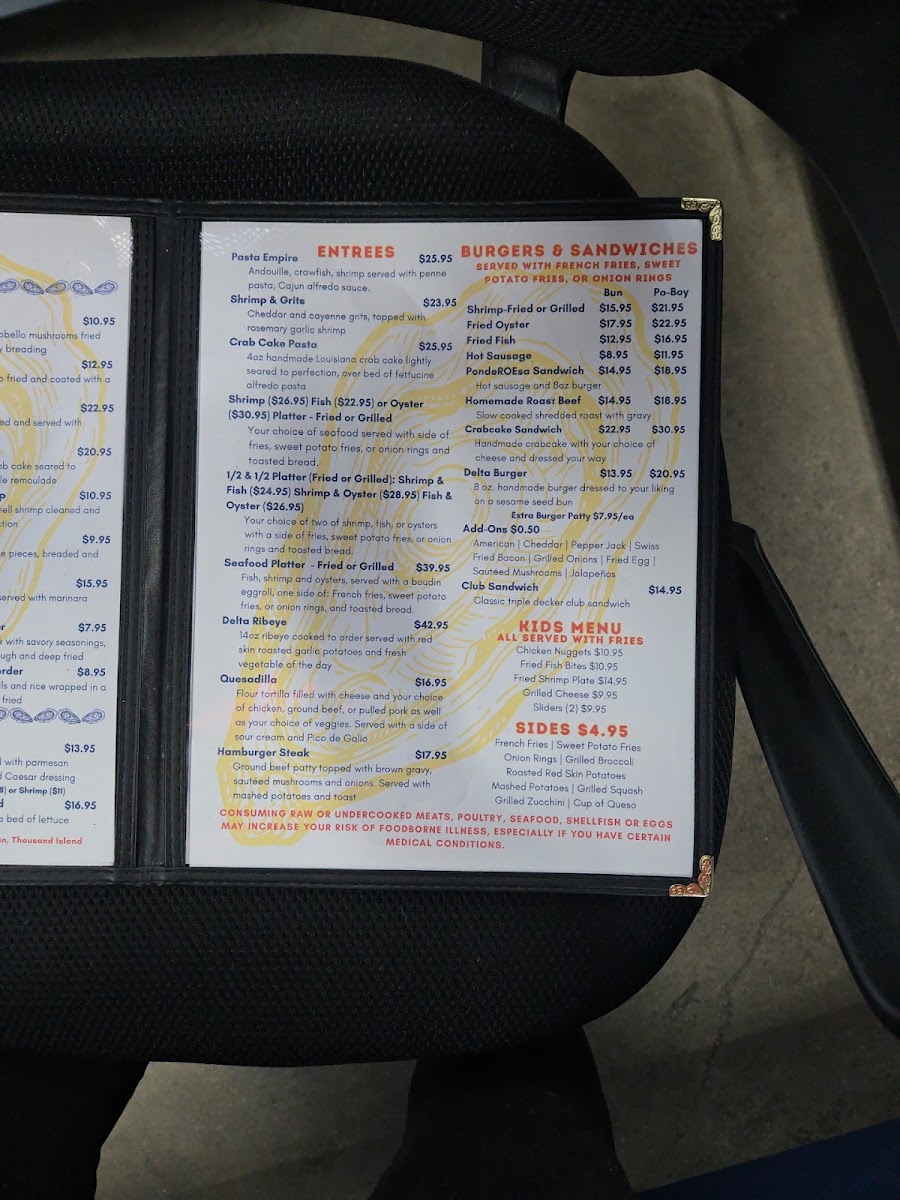 $10.95
obello mushrooms fried
y breading
$12.95
o fried and coated with a
$22.95
ed and served with
$20.95
ab cake seared to
le remoulade
p $10.95
hell shrimp cleaned and
ction
$9.95
e pieces, breaded and
$15.95
served with marinara
er $7.95
k with savory seasonings,
ugh and deep fried
order $8.95
lls and rice wrapped in a
fried
$13.95
d with parmesan
d Caesar dressing
8) or Shrimp ($11)
d $16.95
a bed of lettuce
an, Thousand Island
ENTREES
Pasta Empire $25.95
Andouille, crawfish, shrimp served with penne
pasta, Cajun alfredo sauce.
Shrimp & Grits $23.95
Cheddar and cayenne grits, topped with
rosemary garlic shrimp
Crab Cake Pasta $25.95
4oz handmade Louisiana crab cake lightly
seared to perfection, over bed of fettucine
alfredo pasta
Shrimp ($26.95) Fish ($22.95) or Oyster
($30.95) Platter - Fried or Grilled
Your choice of seafood served with side of
fries, sweet potato fries, or onion rings and
toasted bread.
1/2 & 1/2 Platter (Fried or Grilled): Shrimp &
Fish ($24.95) Shrimp & Oyster ($28.95) Fish &
Oyster ($26.95)
Your choice of two of shrimp, fish, or oysters
with a side of fries, sweet potato fries, or onion
rings and toasted bread.
Seafood Platter - Fried or Grilled $39.95
Fish, shrimp and oysters, served with a boudin
eggroll, one side of: French fries, sweet potato
fries, or onion rings, and toasted bread.
Delta Ribeye $42.95
14oz ribeye cooked to order served with red
skin roasted garlic potatoes and fresh
vegetable of the day
Quesadilla $16.95
Flour tortilla filled with cheese and your choice
of chicken, ground beef, or pulled pork as well
as your choice of veggies. Served with a side of
sour cream and Pico de Gallo
Hamburger Steak $17.95
Ground beef patty topped with brown gravy,
sautéed mushrooms and onions. Served with
mashed potatoes and toast
BURGERS & SANDWICHES
SERVED WITH FRENCH FRIES, SWEET
POTATO FRIES, OR ONION RINGS
Bun Po-Boy
Shrimp-Fried or Grilled $15.95 $21.95
Fried Oyster $17.95 $22.95
Fried Fish $12.95 $16.95
Hot Sausage $8.95 $11.95
PondeROEsa Sandwich $14.95 $18.95
Hot sausage and 8oz burger
Homemade Roast Beef $14.95 $18.95
Slow cooked shredded roast with gravy
Crabcake Sandwich $22.95 $30.95
Handmade crabcake with your choice of
cheese and dressed your way
Delta Burger $13.95 $20.95
8 oz. handmade burger dressed to your liking
on a sesame seed bun
Extra Burger Patty $7.95/ea
Add-Ons $0.50
American | Cheddar | Pepper Jack | Swiss
Fried Bacon | Grilled Onions | Fried Egg |
Sautéed Mushrooms | Jalapeños
Club Sandwich $14.95
Classic triple decker club sandwich
KIDS MENU
ALL SERVED WITH FRIES
Chicken Nuggets $10.95
Fried Fish Bites $10.95
Fried Shrimp Plate $14.95
Grilled Cheese $9.95
Sliders (2) $9.95
SIDES $4.95
French Fries | Sweet Potato Fries
Onion Rings | Grilled Broccoli
Roasted Red Skin Potatoes
Mashed Potatoes | Grilled Squash
Grilled Zucchini | Cup of Queso
CONSUMING RAW OR UNDERCOOKED MEATS, POULTRY, SEAFOOD, SHELLFISH OR EGGS
MAY INCREASE YOUR RISK OF FOODBORNE ILLNESS, ESPECIALLY IF YOU HAVE CERTAIN
MEDICAL CONDITIONS.